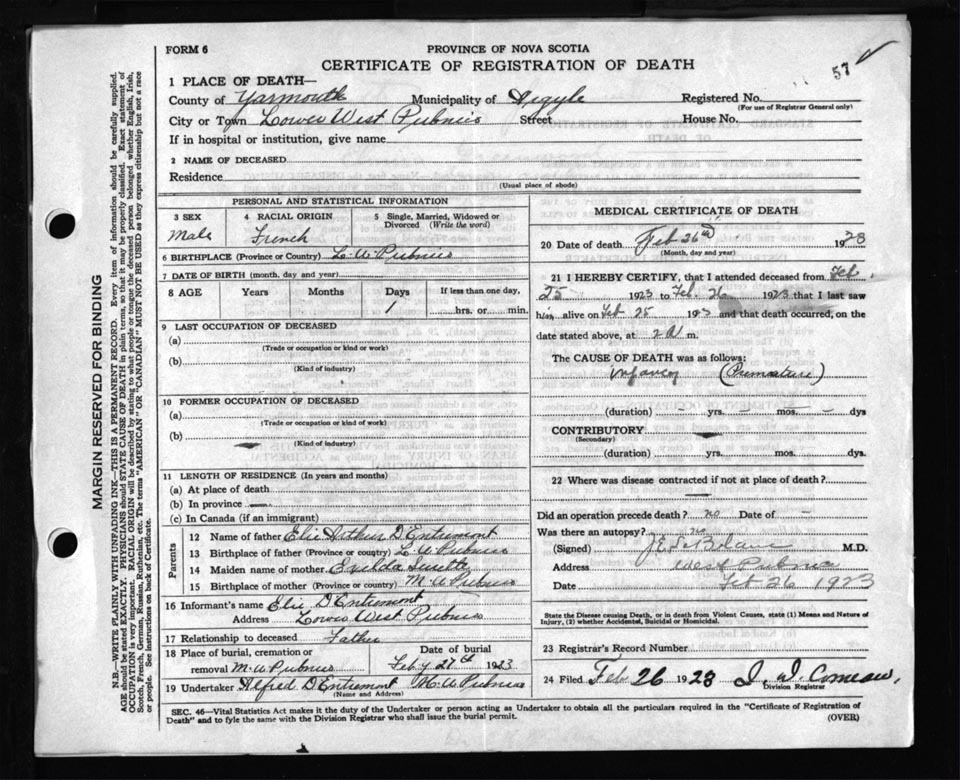 57
FORM 6
PROVINCE OF NOVA SCOTIA
CERTIFICATE OF REGISTRATION OF DEATH
1 PLACE OF DEATH—
County of Yarmouth Municipality of Argyle Registered No.
(For use of Registrar General only)
City or Town Lower West Pubnico Street House No.
If in hospital or institution, give name
2 NAME OF DECEASED
Residence
(Usual place of abode)
PERSONAL AND STATISTICAL INFORMATION
3 SEX 4 RACIAL ORIGIN 5 Single, Married, Widowed or Divorced (Write the word)
Male French
6 BIRTHPLACE (Province or Country) L. W. Pubnico
7 DATE OF BIRTH (month, day and year)
8 AGE Years Months Days If less than one day,
1 hrs. or min.
9 LAST OCCUPATION OF DECEASED
(a)
(Trade or occupation or kind or work)
(b)
(Kind of industry)
10 FORMER OCCUPATION OF DECEASED
(a)
(Trade or occupation or kind of work)
(b)
(Kind of industry)
11 LENGTH OF RESIDENCE (In years and months)
(a) At place of death
(b) In province —
(c) In Canada (if an immigrant)
Parents
12 Name of father Elie Arthur D'Entremont
13 Birthplace of father (Province or country) L. W. Pubnico
14 Maiden name of mother Surette
15 Birthplace of mother (Province or country) M. W Pubnico
16 Informant's name Elie D'Entremont
Address Lower West Pubnico
17 Relationship to deceased Father
18 Place of burial, cremation or Date of burial
removal M. W Pubnico Feby 27th 1923
19 Undertaker Alfred D'Entremont M. W Pubnico
(Name and Address)
MEDICAL CERTIFICATE OF DEATH
20 Date of death Feb 26th 1923
(Month, day and year)
21 I HEREBY CERTIFY, that I attended deceased from Feb
25 1923 to Feb. 26 1923 that I last saw
him alive on Feb 25 1923 and that death occurred, on the
date stated above, at 2 A m.
The CAUSE OF DEATH was as follows:
infancy (Premature)
(duration) - yrs. - mos. - dys
CONTRIBUTORY —
(Secondary)
(duration) yrs. mos. dys
22 Where was disease contracted if not at place of death?
—
Did an operation precede death? no Date of —
Was there an autopsy? no
(Signed) J E LeBlanc M.D.
Address West Pubnico
Date Feb 26 1923
State the Disease causing Death, or in death from Violent Causes, state (1) Means and Nature of
Injury, (2) whether Accidental, Suicidal or Homicidal.
23 Registrar's Record Number
24 Filed Feb. 26 1923 Comeau,
Division Registrar
SEC. 46—Vital Statistics Act makes it the duty of the Undertaker or person acting as Undertaker to obtain all the particulars required in the "Certificate of Registration of
Death" and to fyle the same with the Division Registrar who shall issue the burial permit.
(OVER)
MARGIN RESERVED FOR BINDING
N.B.—WRITE PLAINLY WITH UNFADING INK—THIS IS A PERMANENT RECORD. Every item of information should be carefully supplied.
AGE should be stated EXACTLY. PHYSICIANS should STATE CAUSE OF DEATH in plain terms, so that it may be properly classified. Exact statement of
OCCUPATION is very important. RACIAL ORIGIN will be described by stating to what people or tongue the deceased person belonged whether English, Irish,
Scotch, French, German, Russian, Ruthenian, etc. The terms "AMERICAN" or "CANADIAN" MUST NOT BE USED as they express citizenship but not a race
or people. See instructions on back of Certificate.